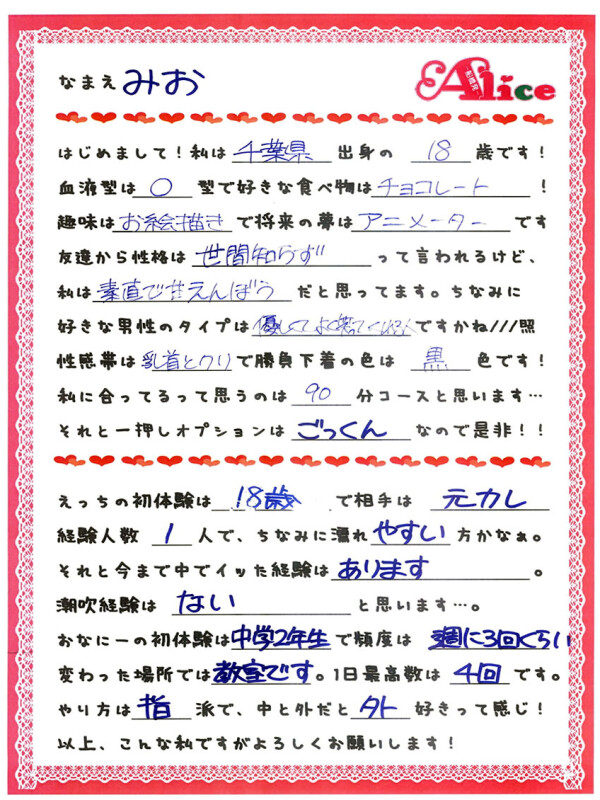 なまえ みお
Alice
はじめまして！私は 千葉県 出身の 18 歳です！
血液型は O 型で好きな食べ物は チョコレート ！
趣味は お絵描き で将来の夢は アニメーター です
友達から性格は 世間知らず って言われるけど、
私は 素直で甘えんぼう だと思ってます。ちなみに
好きな男性のタイプは 優しくてよく笑ってくれる人 ですかね///照
性感帯は 乳首とクリ で勝負下着の色は 黒 色です！
私に合ってるって思うのは 90 分コースと思います…
それと一押しオプションは ごっくん なので是非！！
えっちの初体験は 18歳 で相手は 元カレ
経験人数 1 人で、ちなみに濡れ やすい 方かなぁ。
それと今まで中でイッた経験は あります 。
潮吹経験は ない と思います…。
やり方は 指 派で、中と外だと 外 好きって感じ！
以上、こんな私ですがよろしくお願いします！